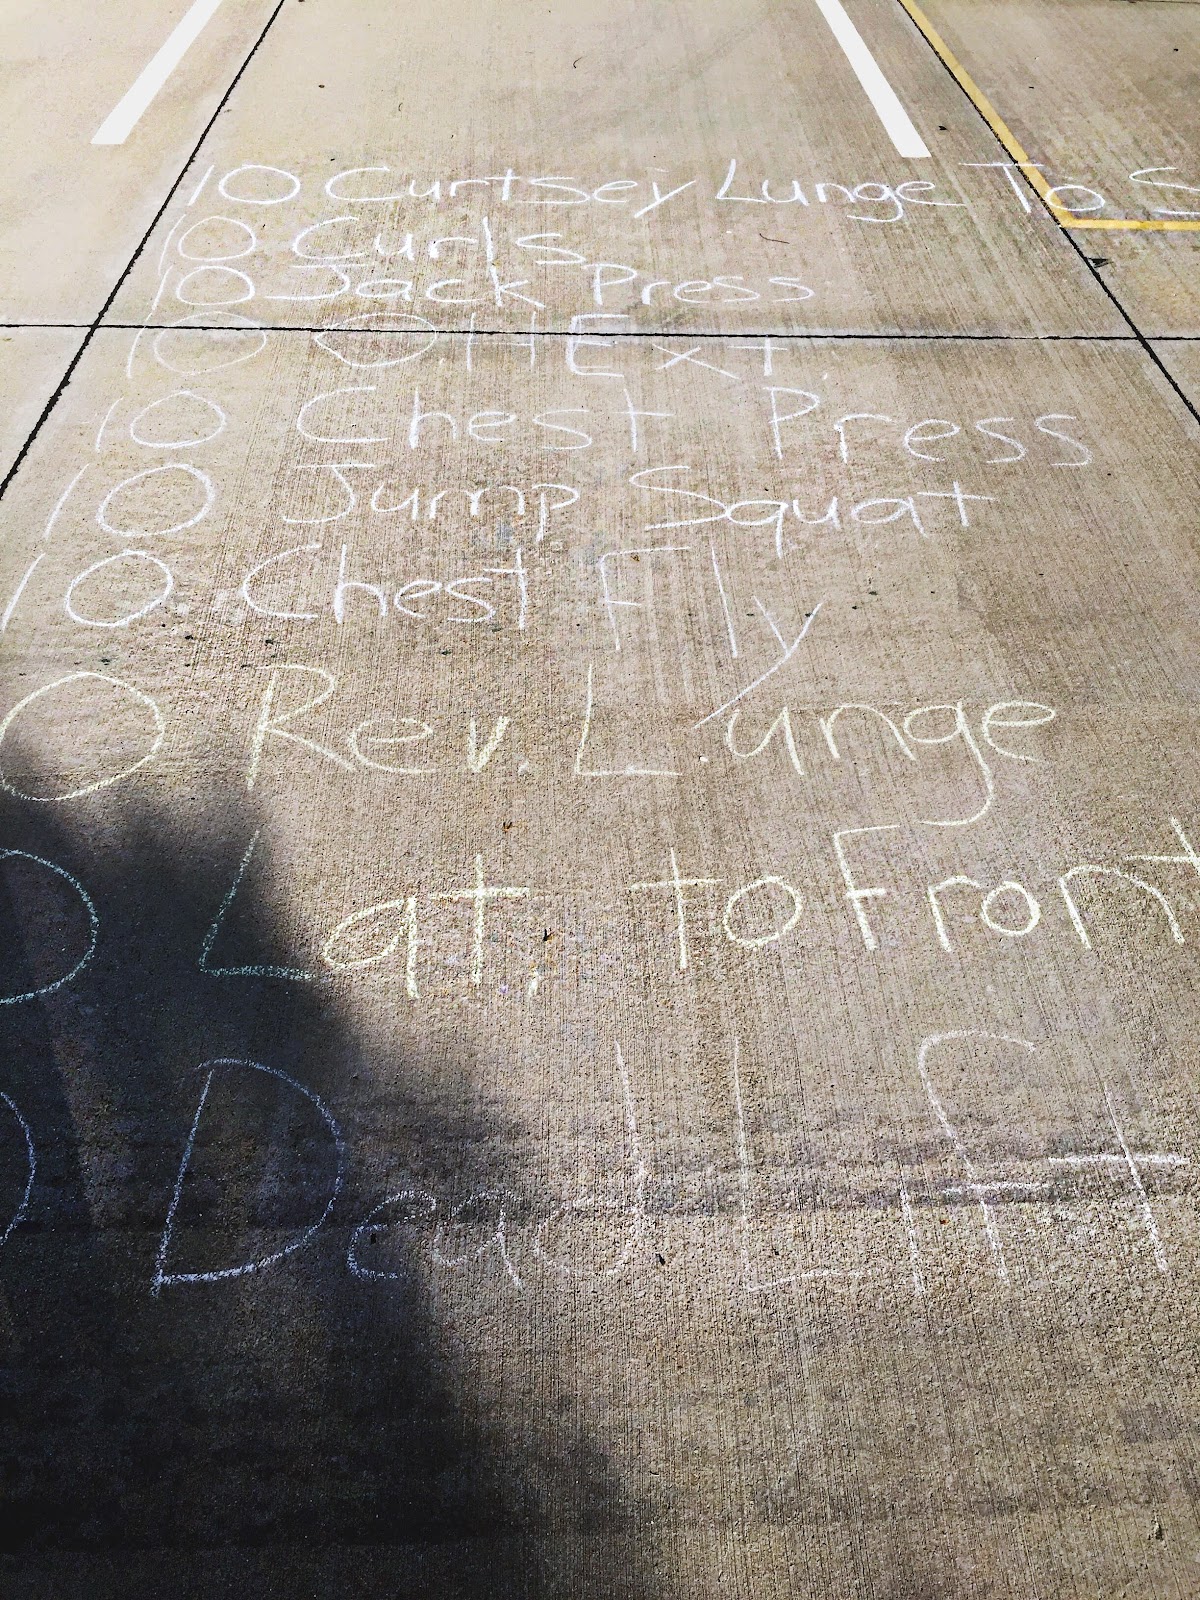 10 Curtsey Lunge To S
10 Curls
10 Jack Press
10 OH Ext.
10 Chest Press
10 Jump Squat
10 Chest Fly
0 Rev. Lunge
0 Lat. to Front
0 Dead Lift